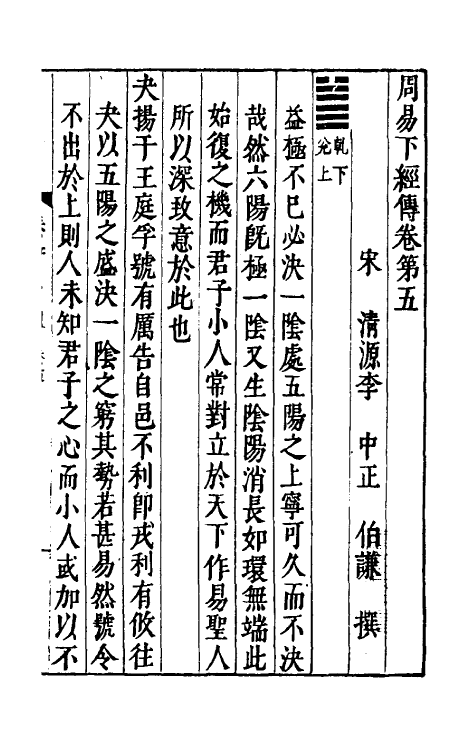 周易下經傳卷第五
宋 清源李 中正 伯謙 撰
乾下
兌上
益極不已必決一陰處五陽之上寧可久而不決
哉然六陽旣極一陰又生陰陽消長如環無端此
始復之機而君子小人常對立於天下作易聖人
所以深致意於此也
夬揚于王庭孚號有厲告自邑不利卽戎利有攸往
夬以五陽之盛決一陰之窮其勢若甚易然號令
不出於上則人未知君子之心而小人或加以不